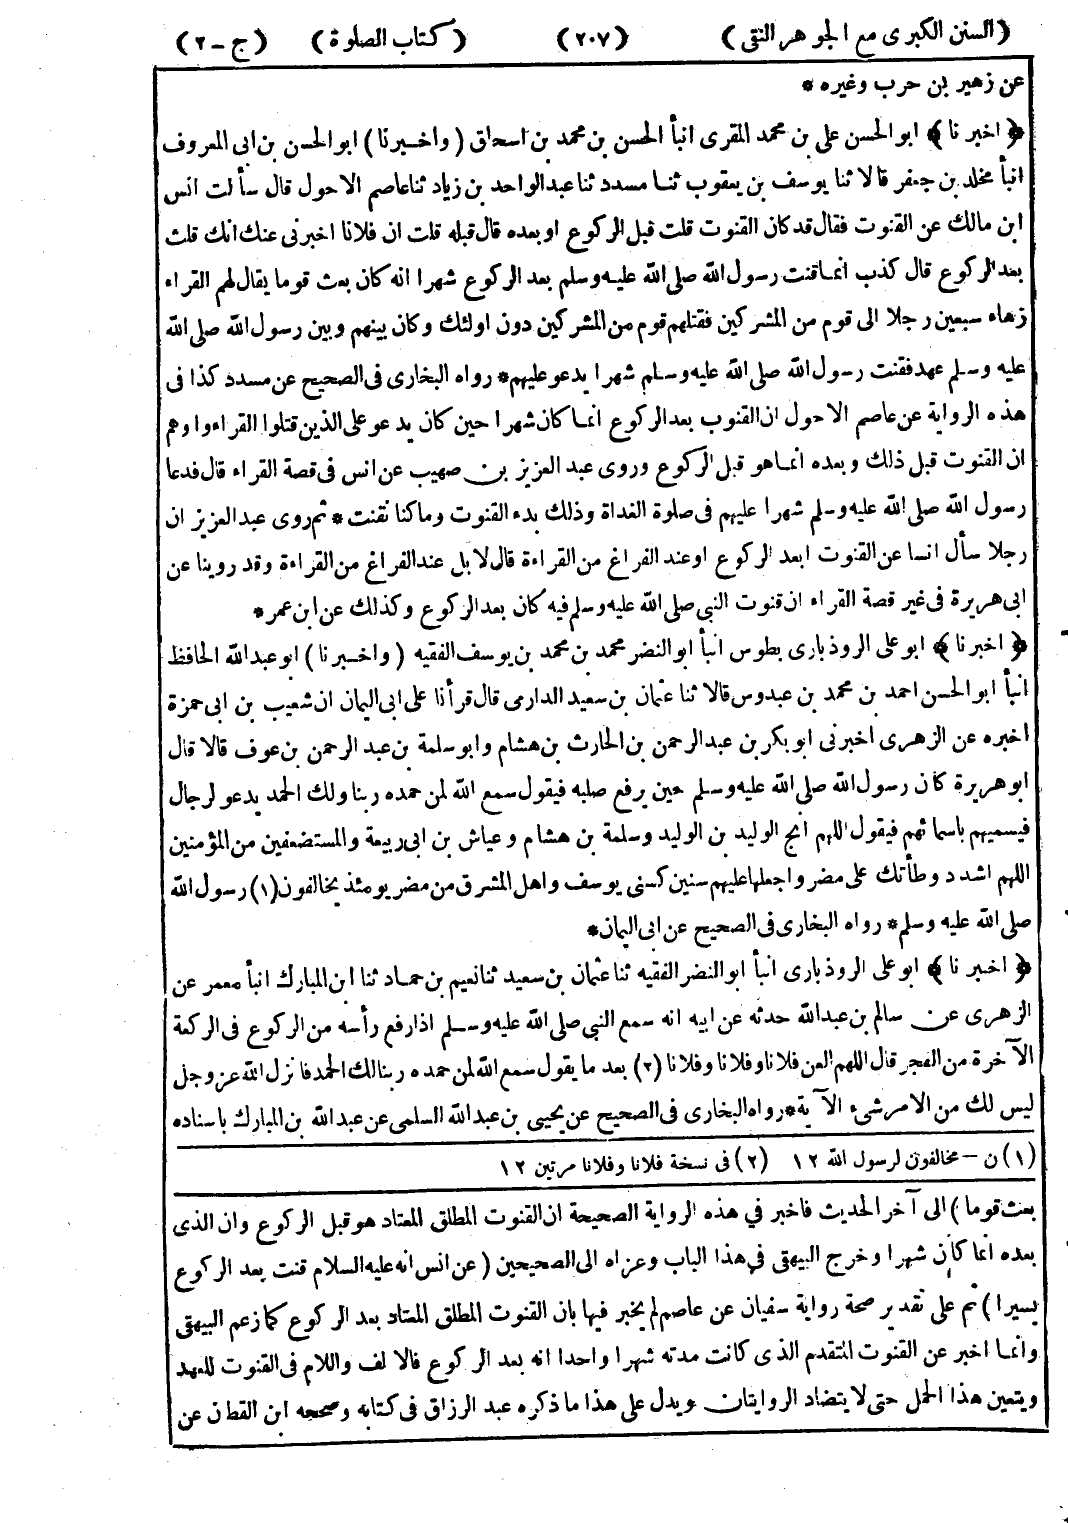 (السنن الكبرى مع الجوهر النقى) (٢٠٧) (كتاب الصلوة) (ج - ٢)
عن زهير بن حرب وغيره *
﴿ اخبرنا ﴾ ابو الحسن على بن محمد المقرى انبأ الحسن بن محمد بن اسحاق (واخبرنا) ابو الحسن بن ابى المعروف
انبأ مخلد بن جعفر قالا ثنا يوسف بن يعقوب ثنا مسدد ثنا عبد الواحد بن زياد ثنا عاصم الاحول قال سألت انس
ابن مالك عن القنوت فقال قد كان القنوت قلت قبل الركوع او بعده قال قبله قلت ان فلانا اخبرنى عنك انك قلت
بعد الركوع قال كذب انما قنت رسول الله صلى الله عليه وسلم بعد الركوع شهرا انه كان بعث قوما يقال لهم القراء
زهاء سبعين رجلا الى قوم من المشركين فقتلهم قوم من المشركين دون اولئك وكان بينهم وبين رسول الله صلى الله
عليه وسلم عهد فقنت رسول الله صلى الله عليه وسلم شهرا يدعو عليهم * رواه البخارى فى الصحيح عن مسدد كذا فى
هذه الرواية عن عاصم الاحول ان القنوب بعد الركوع انما كان شهرا حين كان يدعو على الذين قتلوا القراء واوهم
ان القنوت قبل ذلك وبعده انما هو قبل الركوع وروى عبد العزيز بن صهيب عن انس فى قصة القراء قال فدعا
رسول الله صلى الله عليه وسلم شهرا عليهم فى صلوة الغداة وذلك بدء القنوت وما كنا نقنت * ثم روى عبد العزيز ان
رجلا سأل انسا عن القنوت ابعد الركوع او عند الفراغ من القراءة قال لا بل عند الفراغ من القراءة وقد روينا عن
ابى هريرة فى غير قصة القراء ان قنوت النبى صلى الله عليه وسلم فيه كان بعد الركوع وكذلك عن ابن عمر *
﴿ اخبرنا ﴾ ابو على الروذبارى بطوس انبأ ابو النضر محمد بن محمد بن يوسف الفقيه (واخبرنا) ابو عبد الله الحافظ
انبأ ابو الحسن احمد بن محمد بن عبدوس قالا ثنا عثمان بن سعيد الدارمى قال قرأنا على ابى اليمان ان شعيب بن ابى حمزة
اخبره عن الزهرى اخبرنى ابو بكر بن عبد الرحمن بن الحارث بن هشام وابو سلمة بن عبد الرحمن بن عوف قالا قال
ابو هريرة كان رسول الله صلى الله عليه وسلم حين يرفع صلبه فيقول سمع الله لمن حمده ربنا ولك الحمد يدعو لرجال
فيسميهم باسمائهم فيقول اللهم انج الوليد بن الوليد وسلمة بن هشام وعياش بن ابى ربيعة والمستضعفين من المؤمنين
اللهم اشدد وطأتك على مضر واجعلها عليهم سنين كسنى يوسف واهل المشرق من مضر يومئذ يخالفون (١) رسول الله
صلى الله عليه وسلم * رواه البخارى فى الصحيح عن ابى اليمان *
﴿ اخبرنا ﴾ ابو على الروذبارى انبأ ابو النضر الفقيه ثنا عثمان بن سعيد ثنا نعيم بن حماد ثنا ابن المبارك انبأ معمر عن
الزهرى عن سالم بن عبد الله حدثه عن ابيه انه سمع النبى صلى الله عليه وسلم اذا رفع رأسه من الركوع فى الركعة
الآخرة من الفجر قال اللهم العن فلانا وفلانا وفلانا (٢) بعد ما يقول سمع الله لمن حمده ربنا لك الحمد فانزل الله عز وجل
ليس لك من الامر شىء الآية * رواه البخارى فى الصحيح عن يحيى بن عبد الله السلمى عن عبد الله بن المبارك باسناده
(١) ن - مخالفون لرسول الله ١٢ (٢) فى نسخة فلانا وفلانا مرتين ١٢
بعث قوما) الى آخر الحديث فاخبر في هذه الرواية الصحيحة ان القنوت المطلق المعتاد هو قبل الركوع وان الذى
بعده انما كان شهرا وخرج البيهقى في هذا الباب وعزاه الى الصحيحين (عن انس انه عليه السلام قنت بعد الركوع
يسيرا) ثم على تقدير صحة رواية سفيان عن عاصم لم يخبر فيها بان القنوت المطلق المعتاد بعد الركوع كما زعم البيهقى
وانما اخبر عن القنوت المتقدم الذى كانت مدته شهرا واحدا انه بعد الركوع فالالف واللام فى القنوت للعهد
ويتعين هذا الحمل حتى لا يتضاد الروايتان ويدل على هذا ما ذكره عبد الرزاق فى كتابه وصححه ابن القطان عن